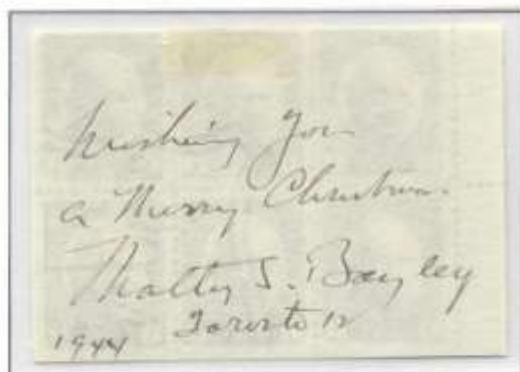 Wishing you
a Merry Christmas.
S. Bayley
Toronto 12
1944